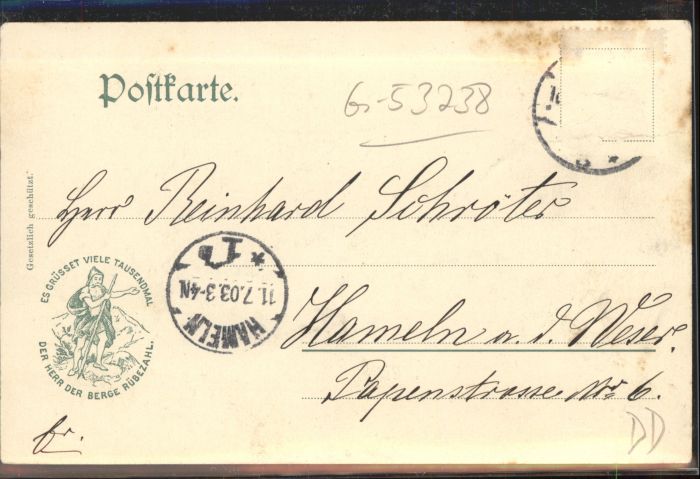 Postkarte.
Gr-53238
Gesetzlich geschützt.
Herr Reinhard Schröter
HAMELN
11.7.03.3-4N
* 1 b *
ES GRÜSSET VIELE TAUSENDMAL
DER HERR DER BERGE RÜBEZAHL.
Hameln a. d. Weser.
Papenstrasse No 6.
fr.
DD